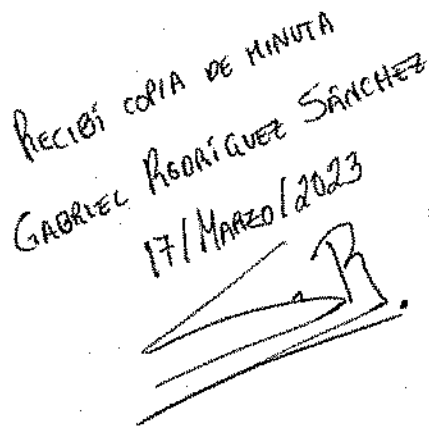 RECIBÍ COPIA DE MINUTA
GABRIEL RODRÍGUEZ SÁNCHEZ
17/MARZO/2023